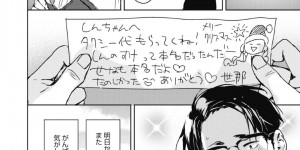 しんちゃんへ
タクシー代もらってくね!
しんのすけって本名だったんだ…
せなも本名だよ♡
たのしかった ありがとう♡ 世那
メリー
クリスマス
明日か
また
がん
気が